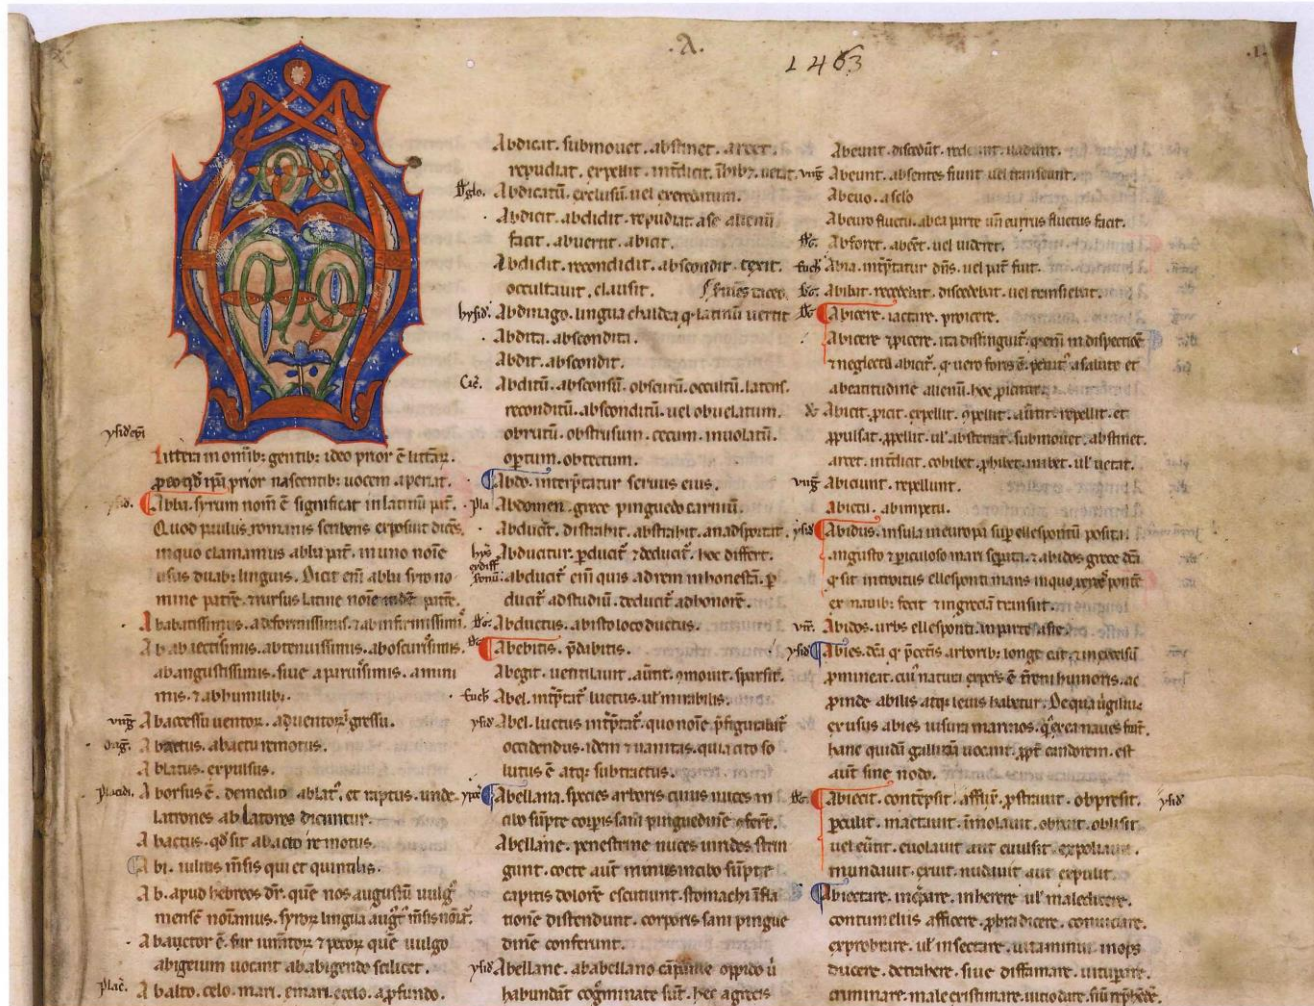 .A.
1463
.I.
ysid ethi
Littera in omīb; gentib; ideo prior ē litterar̄.
p eo qđ ip̄a prior nascentib; uocem aperiat.
ysid. Abba. syrum nom̄ ē significat in latinū pat̄.
Quod paulus romanis scribens exposuit dicēs.
in quo clamamus abba pat̄. in uno noīe
usus duab; linguis. Dicit eīm abba syro no
mine patrē. rursus latine noīe patrē.
Ababatissimus. a deformissimis. ⁊ ab infirmissimis.
Ab abiectissimis. abtenuissimis. aboscurissimis.
abangustissimis. siue aparuissimis. a mini
mis. ⁊ abhumilib;.
uirḡ Abaccessu uentoꝝ. aduentoꝝ gressu.
Abactus. abactu remotus.
Ablatus. expulsus.
placidi. Aborsus ē. de medio ablat̄. et raptus. unde
latrones ablatores dicuntur.
Abactus. qđ sit abacto remotus.
Abi. iulius m̄sis qui et quintilis.
Ab. apud hebreos dr̄. quē nos augustū uulg̉
mensē noīamus. syroꝝ lingua aug̉t m̄sis noīat̄.
Abauctor ē. fur iumtoꝝ ⁊ pecoꝝ quē uulgo
abigeium uocant ab abigendo scilicet.
plac̄. Abalto. celo. mari. emari. ecelo. a pfundo.
Abdicat. submouet. abstinet. arcet.
repudiat. expellit. int̄dicit. īhib;. uetat.
Abdicatū. exclusū. uel exeredatum.
Abdicit. abdidit. repudiat. a se alienū
facit. abuertit. abicit.
Abdidit. recondidit. abscondit. texit.
occultauit. clausit.
hysid̄. Abdinago. lingua chaldea q̇ latinū uertit
Abdita. abscondita.
Abdit. abscondit.
Cic̄. Abditū. absconsū. obscurū. occultū. latens.
reconditū. absconditū. uel obuelatum.
obrutū. obstrusum. cecum. inuolatū.
optum. obtectum.
Abdo. interp̄tatur seruus eius.
pla Abdomen. grece pinguedo carniū.
Abducit̄. distrahit. abstrahit. an adsportat.
Abducitur. pducit̄ ⁊ deducit̄. hoc differt.
abducit̄ eīm quis ad rem inhonestā. p
ducit̄ ad studiū. deducit̄ ad honorē.
Abductus. ab isto loco ductus.
Abebitis. p̄dibitis.
Abegit. uentilauit. aūfit. ōmouit. sparsit.
Euch̄ Abel. int̄ptat̄ luctus. ul̄ mirabilis.
ysid̄ Abel. luctus int̄ptat̄. quo noīe p̄figurabat̄
occidendus. idem ⁊ uanitas. quia cito so
lutus ē atq; subtractus.
Abellana. species arboris cuius nuces in
cibo sūpte corpis sani pinguedinē ōferūt.
Abellane. penestrine nuces uirides strin
gunt. cocte aūt minus in cibo sūpte
capitis dolorē excutiunt. stomachi īfla
tionē distendunt. corporis sani pingue
dinē conferunt.
ysid̄ Abellane. ababellano cāpanie oppido ū
habundāt cogminate sūt. hee a grecis
Abeunt. discedūt. redeunt. uadunt.
uirḡ Abeunt. absentes fiunt uel transeunt.
Abeuo. a selo
Abeuro fluctu. ab ea parte un̄ eurrus fluctus facit.
Abforet. abeēt. uel uideret.
Euch̄ Abia. int̄ptatur dn̄s. uel pat̄ fuit.
Abibat. recedebat. discedebat. uel transiebat.
Abicere. iactare. proicere.
Abicere ⁊ picere. ita distinguit̄. q̇ eīm in dispectionē
⁊ neglectū abicit̄. q̇ uero foris ē. peiit̄ a salute et
a beatitudine alienū. hoc picitur.
Abicit. picit. expellit. ōpellit. aūtit. repellit. et
ppulsat. ppellit. ul̄ abstenat. submouet. abstinet.
arcet. int̄dicit. cohibet. phibet. iubet. ul̄ uetat.
uirḡ Abiciunt. repellunt.
Abictu. ab impetu.
ysid̄ Abidus. insula in europa sup ellespontū posita.
angusto ⁊ piculoso mari separata. ⁊ abidos grece dc̄a
q̇ sit introitus ellesponti maris in quo xerxes pontē
ex nauib; fecit ⁊ in greciā transiit.
Abidos. urbs ellesponti in parte asie.
ysid̄ Abies. dc̄a q̇ p̄ceteris arborib; longe eat ⁊ in excelsū
pmineat. cui natura expers ē t̄reni humoris. ac
pinde abilis atq; leuis habetur. De qua uirgilius.
et usus abies uisura marinos. q̇ ex ea naues fiūt.
hanc quidā gallicā uocant. ppt̄ candorem. est
aūt sine nodo.
Abiecit. contēpsit. afflixit. pstrauit. obpressit.
pculit. mactauit. īmolauit. obruit. oblisit
uel eūtit. euolauit aut euulsit. expoliauit.
mundauit. exuit. nudauit aut expulit.
Abiectare. increpare. inherere ul̄ maledicere.
contumeliis afficere. pbra dicere. conuiciare.
exprobrare. ul̄ insectare. uitaminiū. inops
ducere. detrahere. siue diffamare. uitupare.
criminare. male existimare. uitio dare. siue rephēde.